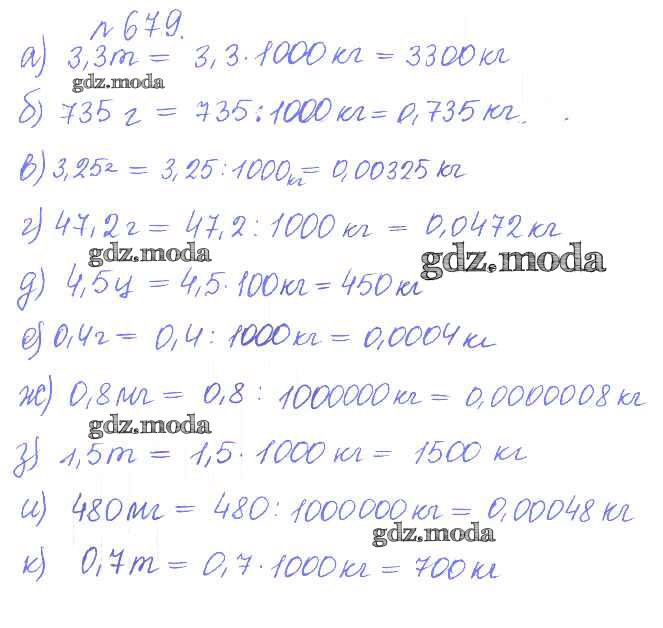 № 679.
а) 3,3т = 3,3·1000 кг = 3300 кг
gdz.moda
б) 735 г = 735:1000 кг = 0,735 кг.
в) 3,25г = 3,25:1000кг = 0,00325 кг
г) 47,2г = 47,2:1000 кг = 0,0472 кг
gdz.moda
gdz.moda
д) 4,5ц = 4,5·100кг = 450 кг
е) 0,4г = 0,4: 1000 кг = 0,0004 кг
ж) 0,8мг = 0,8 : 1000000 кг = 0,0000008 кг
gdz.moda
з) 1,5т = 1,5·1000 кг = 1500 кг
и) 480мг = 480:1000000 кг = 0,00048 кг
gdz.moda
к) 0,7т = 0,7·1000 кг = 700 кг